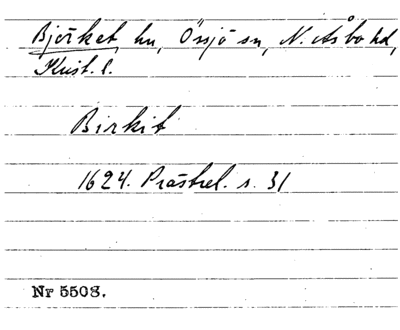 Bjärket, hu, Össjö sn, N. Åsbo hd,
Krist. l.
Birkit
1624. Prästrel. s. 31
Nr 5508.